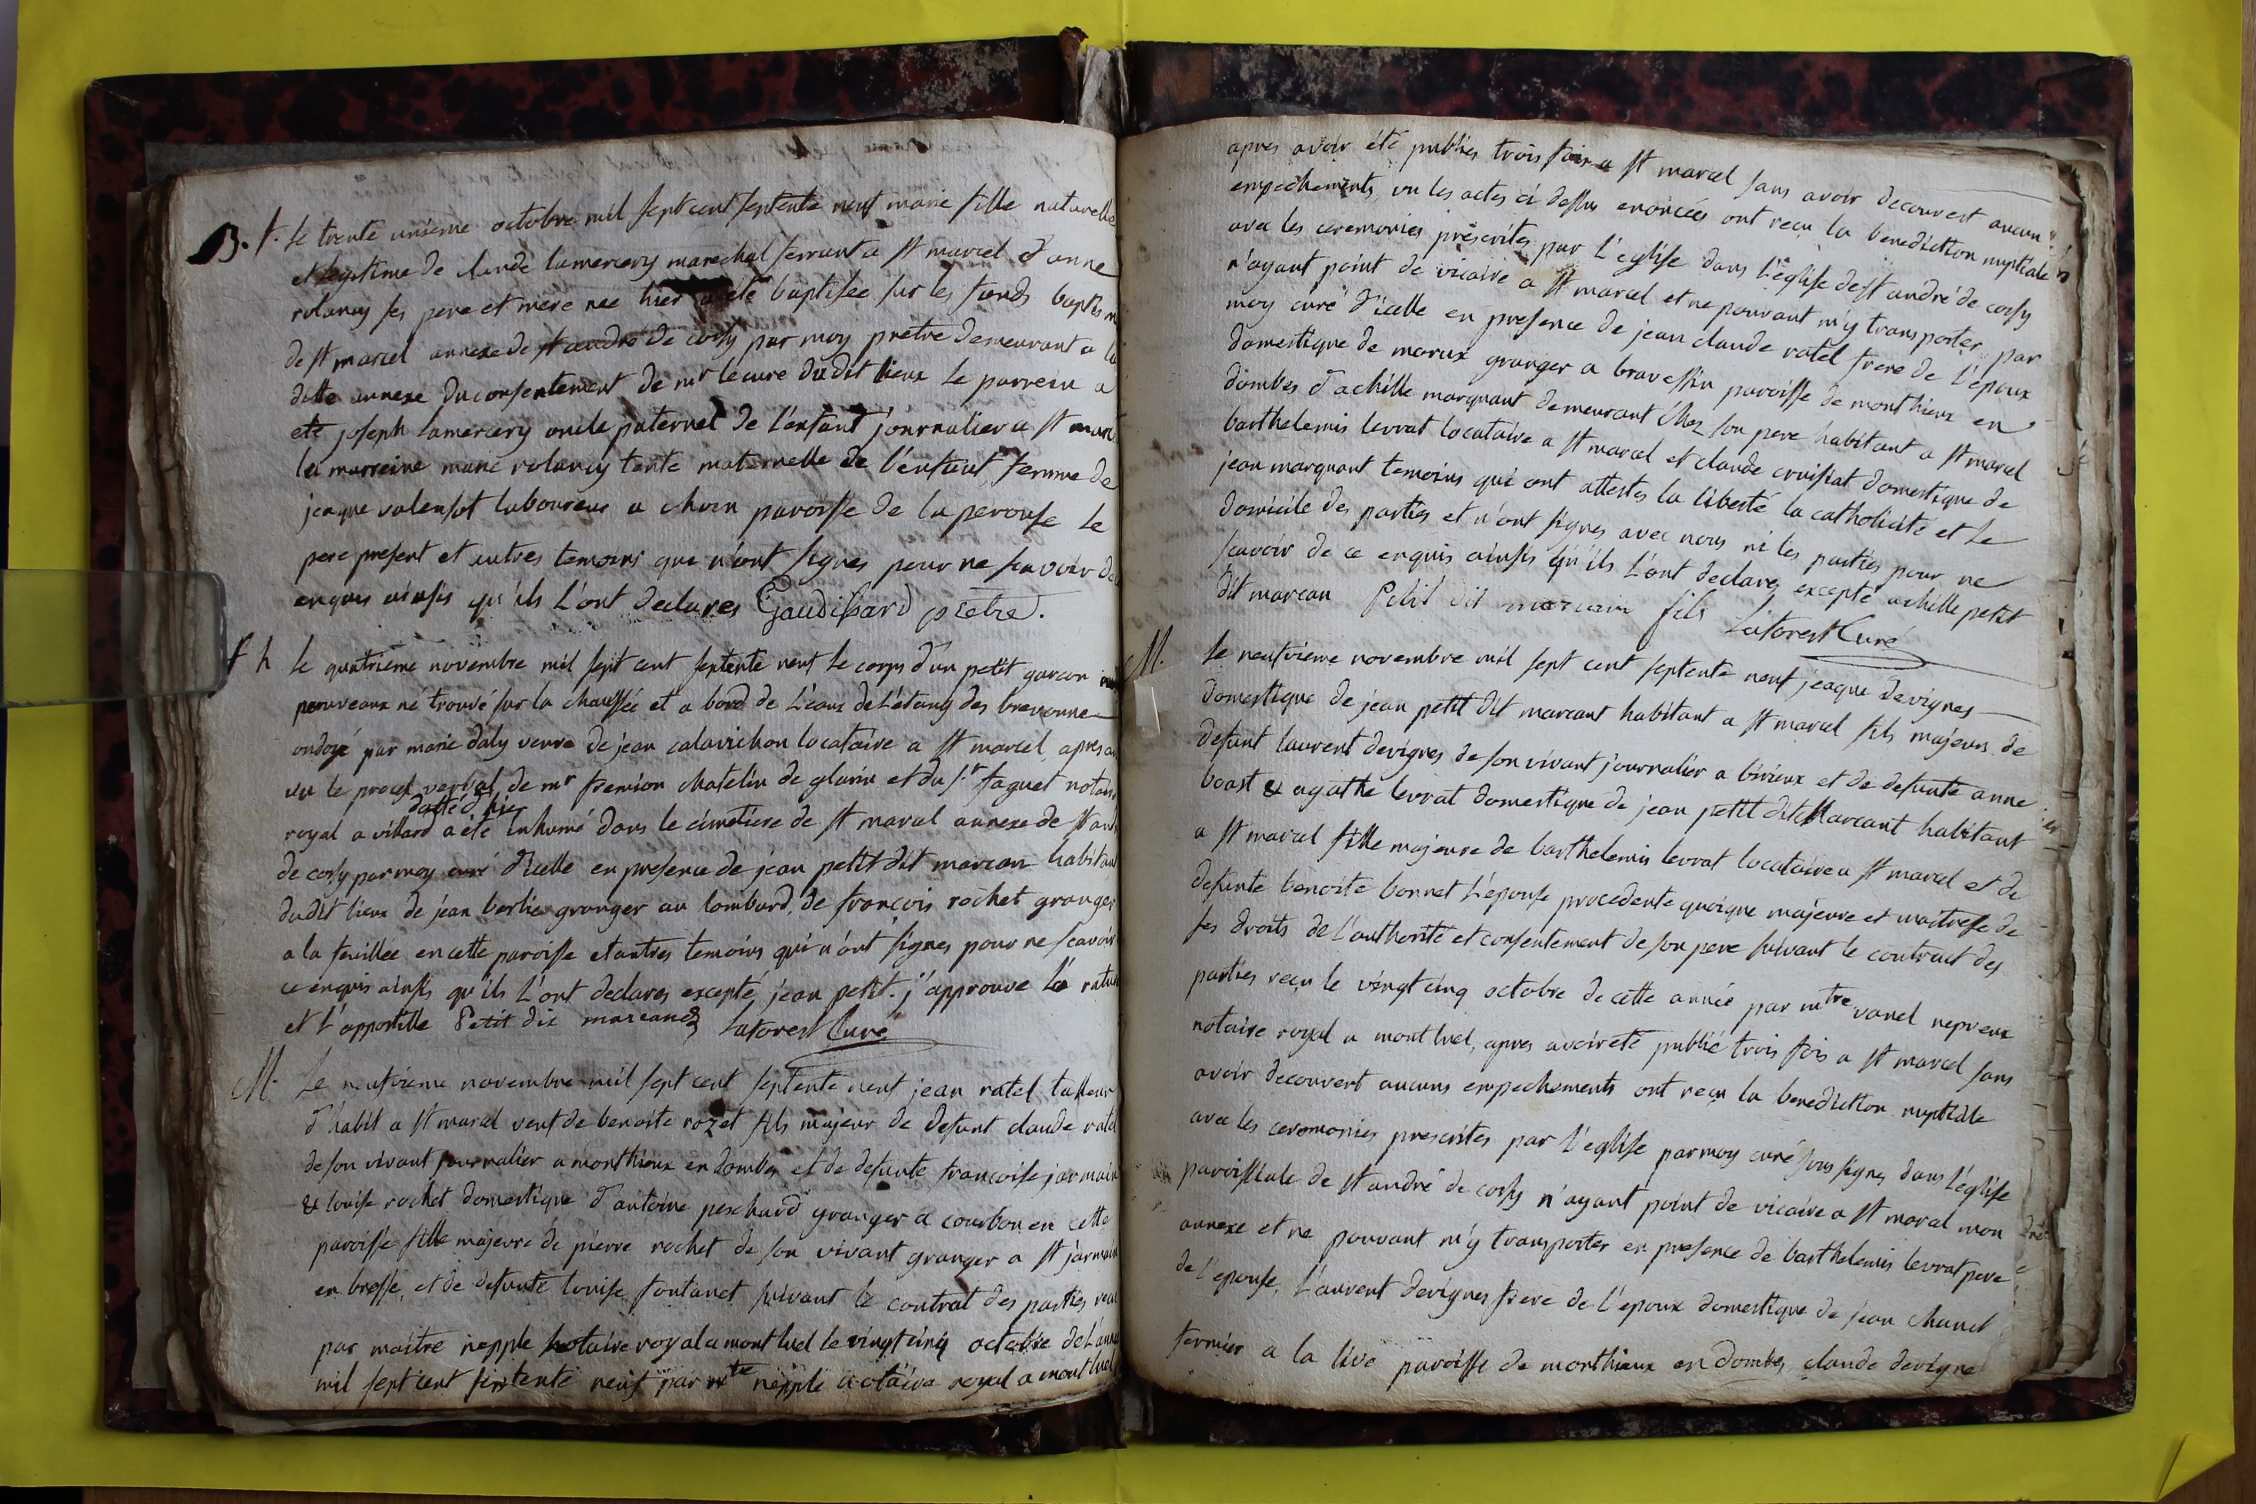 B. f. Le trente unieme octobre mil sept cent septente neuf marie fille naturelle
et legitime de claude lamercery marechal ferrant a st marcel & anne
rolancy ses pere et mere nee hier a ete baptisée sur les fonds baptism
de st marcel annexe de st andré de corsy par moy pretre demeurant a la
ditte annexe du consentement de mr le cure du dit lieux le parrein a
eté joseph lamercery oncle paternel de l'enfant journalier a st marc
la marreine marie rolancy tente maternelle de l'enfant femme de
jeaque valensot laboureur a choin paroisse de la perouse le
pere present et autres temoins qui n'ont signes pour ne scavoir de
enquis ainsis qu'ils l'ont declares Gaudissard prêtre.
f h Le quatrieme novembre mil sept cent septente neuf le corps d'un petit garcon
nouveaux né trouvé sur la chaussée et a bord de l'eaux de l'étang des brevonne
ondoyé par marie daly veuve de jean calavichon locataire a st marcel, apres a
vu le procès verbal de mr fremion chatelin de glarin et du sr faguet notaire
datté d'hier
royal a villard a été inhumé dans le cimetiere de st marcel annexe de st and
de corsy par moy curé d'icelle en presence de jean petit dit marcan habitant
dudit lieux de jean berlie granger au lombard, de françois rochet granger
a la feuillee en cette paroisse et autres temoins qui n'ont signes pour ne scavoir
ce enquis ainsis qu'ils l'ont declares excepté jean petit. j'approuve la ratur
et l'appostille Petit dit marcand Laforest Curé
M. Le neufvieme novembre mil sept cent septente neuf jean ratel talleur
d'habit a st marcel veuf de benoite rozet fils majeur de defunt claude ratel
de son vivant journalier a monthieux en dombes et de defunte francoise jarmain
& louise rochet domestique d'antoine peschard granger a courbon en cette
paroisse fille majeure de pierre rochet de son vivant granger a st jarmain
en bresse, et de defunte louise fontanet suivant le contrat des parties recu
par maitre nepple notaire royal a mont luel le vingt cinq octobre de l'année
mil sept cent septente neuf par mtre nepple notaire royal a mont luel
apres avoir été publies trois fois a st marcel sans avoir decouvert aucun
empechements, vu les actes ci dessus enoncées ont reçu la benediction nuptiale
avec les ceremonies prescrites par l'eglise dans l'église de st andré de corsy
n'ayant point de vicaire a st marcel et ne pouvant m'y transporter par
moy curé d'icelle en presence de jean claude ratel frere de l'epoux
domestique de morux granger a bravessin paroisse de monthieux en
dombes d'achille marquant demeurant chez son pere habitant a st marcel
barthelemis levrat locataire a st marcel et claude cruissiat domestique de
jean marquant temoins qui ont attestes la liberté la catholicité et le
domicile des parties et n'ont signes avec nous ni les parties pour ne
scavoir de ce enquis ainsis qu'ils l'ont declares excepté achille petit
dit marcan Petit dit marcain fils Laforest Curé
M. Le neufvieme novembre mil sept cent septente neuf jeaque devignes
domestique de jean petit dit marcant habitant a st marcel fils majeur de
defunt laurent devignes de son vivant journalier a birieux et de defunte anne
boast & agathe levrat domestique de jean petit dit Marcant habitant
a st marcel fille majeure de barthelemis levrat locataire a st marcel et de
defunte benoite bonnet l'epouse procedente quoique majeure et maitresse de
ses droits de l'authorité et consentement de son pere suivant le contract des
parties reçu le vingt cinq octobre de cette année par mtre vanel nepveux
notaire royal a mont luel, apres avoir eté publié trois fois a st marcel sans
avoir decouvert aucuns empechements ont reçu la benediction nuptiale
avec les ceremonies prescrites par l'eglise par moy curé sous signes dans l'église
paroissiale de st andré de corsy n'ayant point de vicaire a st marcel mon
annexe et ne pouvant m'y transporter en presence de barthelemis levrat pere
de l'epouse, Laurent devignes frere de l'epoux domestique de jean chanel
fermier a la live paroisse de monthieux en dombes, claude devigne